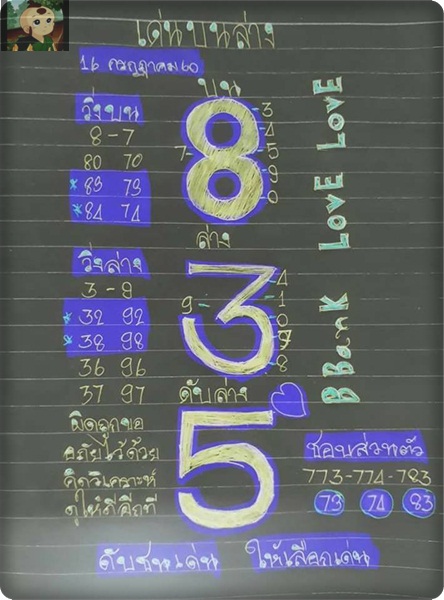 เด่นบนล่าง
16 กรกฎาคม 60
บน
วิ่งบน
8-7
80 70
* 83 73
* 84 74
8
3
4
7- 5
9
0
ล่าง
วิ่งล่าง
3-9
* 32 92
* 38 98
36 96
37 97
3
4
9- 1
0
7
8
ดับล่าง
5
ผิดถูกขอ
อภัยไว้ด้วย
คิดวิเคราะห์
ดูให้ดีอีกที
BBank LovE LovE
ชอบส่วนตัว
773-774-783
73 74 83
ดับชนเด่น ให้เลือกเด่น